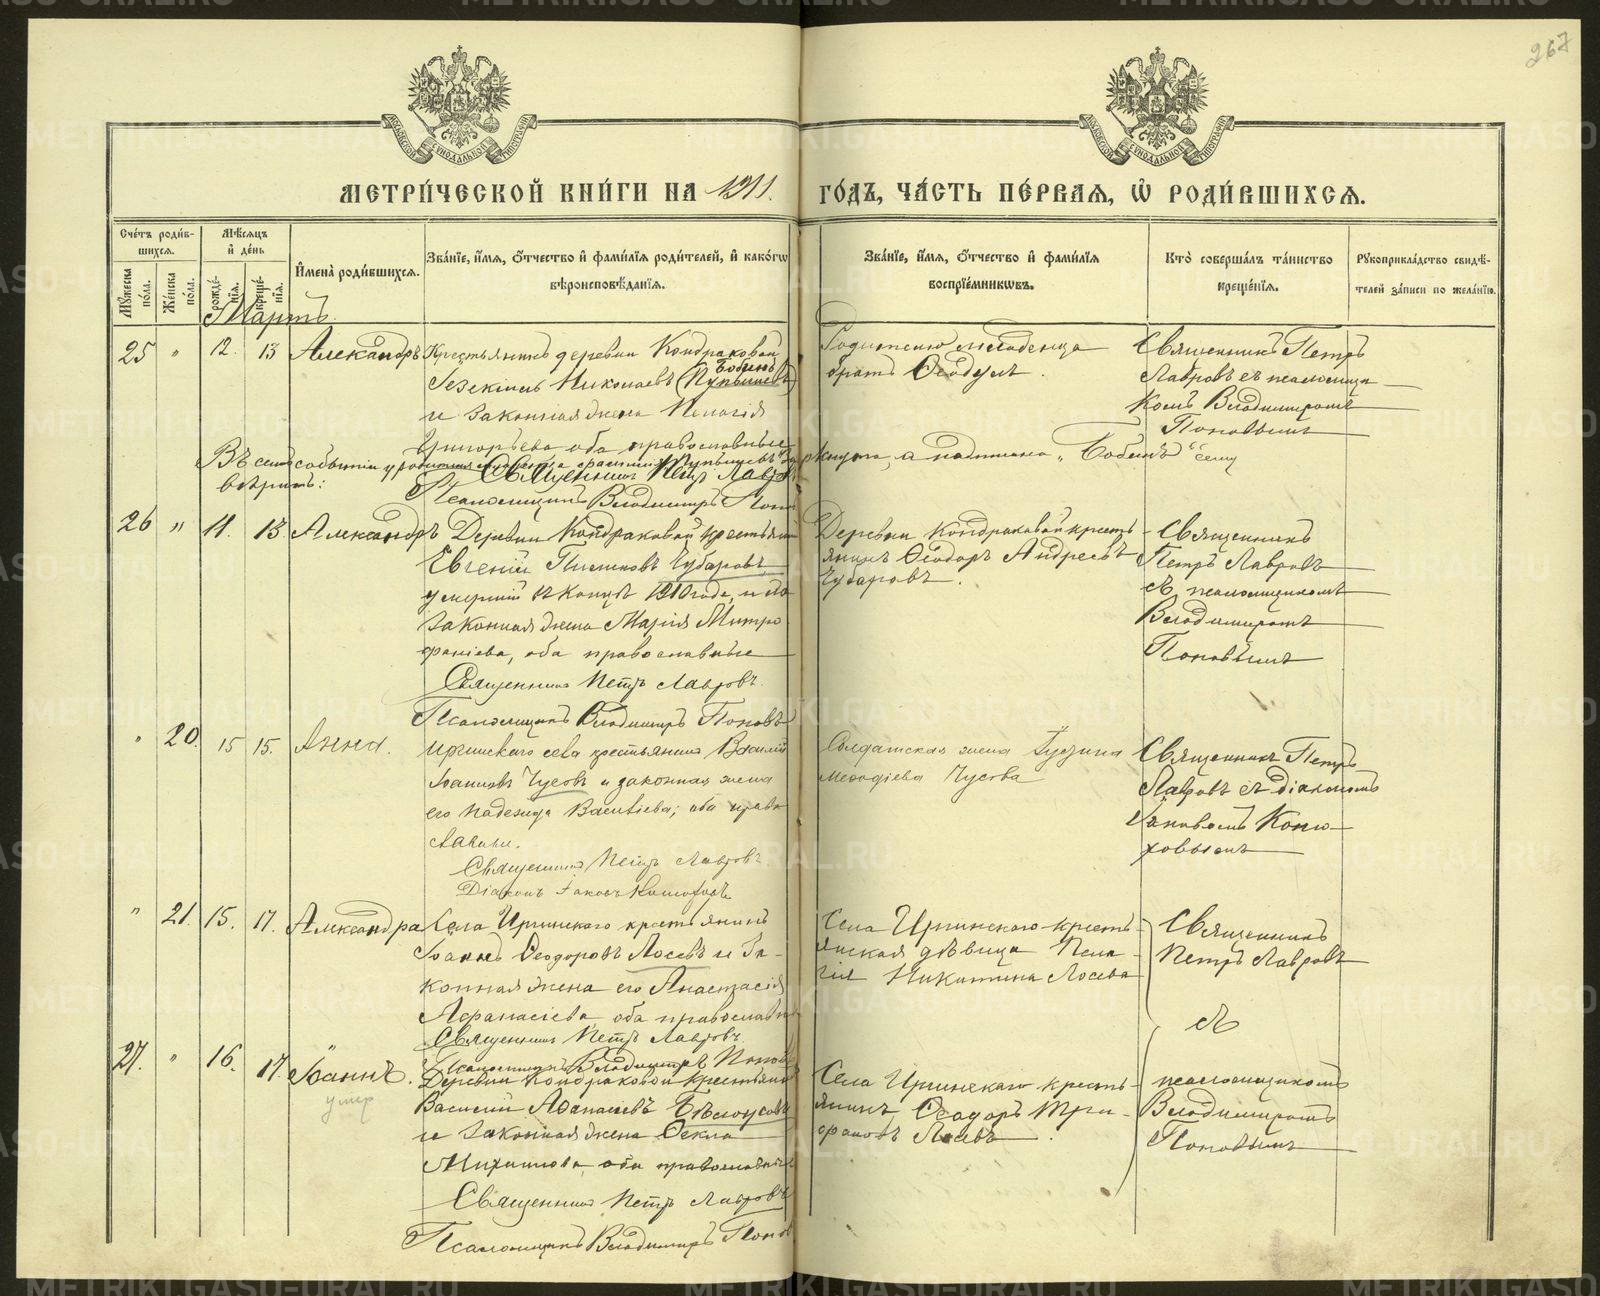 267
МЕТРИ́ЧЕСКОЙ КНИ́ГИ НА 1911. ГО́ДЪ, ЧА́СТЬ ПЕ́РВАЯ, Ѽ РОДИ́ВШИХСЯ.
Сче́тъ роди́вшихся.
Мѣ́сяцъ и҆ де́нь
И҆мена̀ роди́вшихся.
Зва́нїе, и҆́мя, ѻ҆́тчество и҆ фами́лїѧ роди́телей, и҆ како́гѡ вѣроисповѣ́данїѧ.
Зва́нїе, и҆́мя, ѻ҆́тчество и҆ фами́лїѧ воспрїе́мникѡвъ.
Кто̀ соверша́лъ та́инство креще́нїѧ.
Рꙋкоприкла́дство свидѣ́телей за́писи по жела́нїю.
Мꙋ́жеска по́ла.
Же́нска по́ла.
рожде́нїѧ.
креще́нїѧ.
Мартъ.
25 " 12. 13 Александръ
Крестьянинъ деревни Кондраковой
Бобинъ
Іезекіиль Николаевъ (Пупышевъ)
и законная жена Пелагія
Григорьева оба православные
Родителю младенца
братъ Ѳеодулъ.
Священникъ Петръ
Лавровъ съ псаломщи
комъ Владимиромъ
Поповымъ
Въ семъ событіи у родителя младенца фамилія "Пупышевъ" зачеркнута, а надписана "Бобинъ" сему
вѣрить:
Священникъ Петръ Лавровъ
Псаломщикъ Владимиръ Попо
26 " 11. 13 Александръ
Деревни Кондраковой крестьянин
Евгеній Чубаровъ,
умершій въ концѣ 1910 года, и
законная жена Марія Митро
фаніева, оба православные
Священникъ Петръ Лавровъ.
Псаломщикъ Владимиръ Поповъ
Деревни Кондраковой кресть
янинъ Ѳеодоръ Андреевъ
Чубаровъ.
Священникъ
Петръ Лавровъ
съ псаломщикомъ
Владимиромъ
Поповымъ
" 20. 15 15. Анна.
Иргинскаго села крестьянинъ Василій
Іоанновъ Чусовъ и законная жена
его Надежда Васильева; оба право
славны.
Священникъ Петръ Лавровъ
Діаконъ Іаковъ Конюховъ
Солдатская жена
Меѳодіева Чусова
Священникъ Петръ
Лавровъ съ діакономъ
Іаковомъ Коню
ховымъ
" 21. 15. 17. Александра
Села Иргинскаго крестьянинъ
Іоаннъ Ѳеодоровъ Лосевъ и за-
конная жена его Анастасія
Аѳанасіева оба православн
Священникъ Петръ Лавровъ.
Псаломщикъ Владимиръ Попов
Села Иргинскаго кресть-
янская дѣвица Пела-
гія Никитина Лосева
Священникъ
Петръ Лавровъ
съ
27. " 16. 17. Іоаннъ.
умер
Деревни Кондраковой крестьянин
Василій Аѳанасіевъ Бѣлоусовъ
и законная жена Ѳекла
Михаилова, оба православны
Священникъ Петръ Лавровъ
Псаломщикъ Владимиръ Попов
Села Иргинскаго кресть-
янинъ Ѳеодоръ Три-
фановъ Лосевъ.
псаломщикомъ
Владимиромъ
Поповымъ